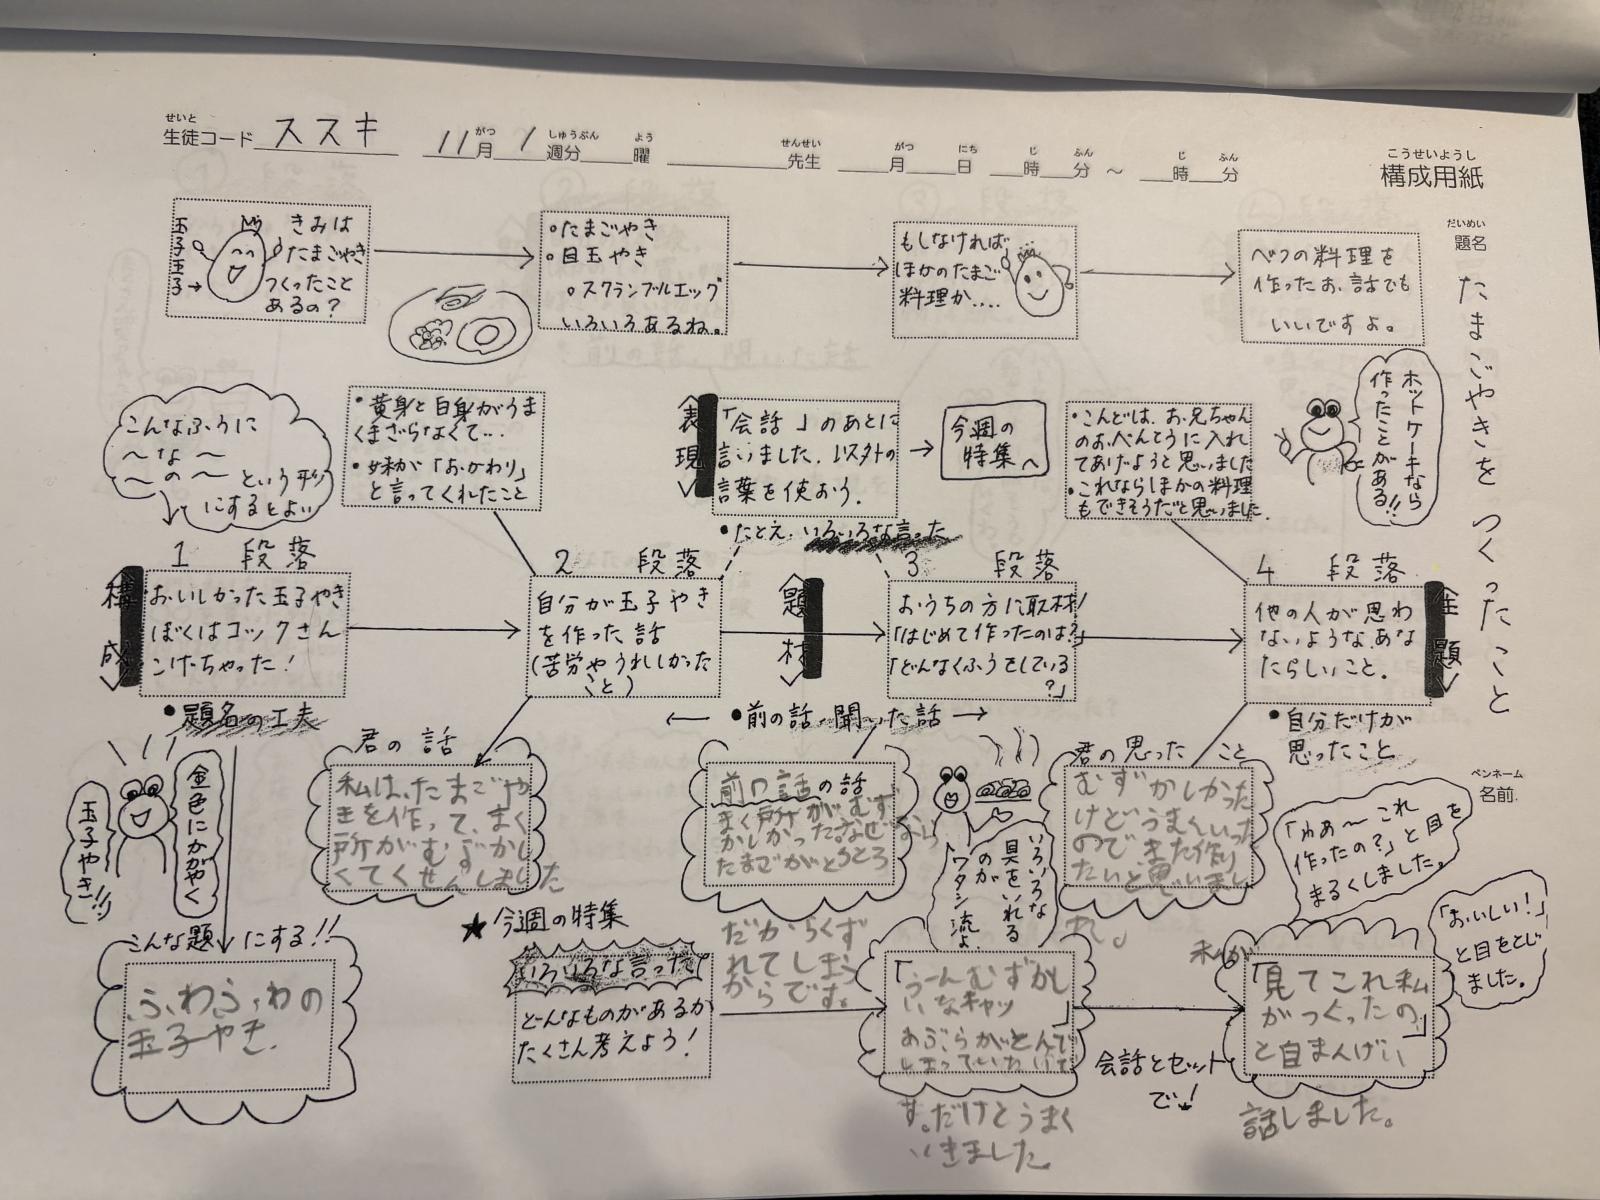 せいと
生徒コード ススキ 11月 1週分 曜 先生 月 日 時 分 ～ 時 分
がつ しゅうぶん よう せんせい がつ にち じ ふん じ ふん
こうせいようし
構成用紙
だいめい
題名
たまごやきをつくったこと
ペンネーム
名前
玉子玉子→
きみは
たまごやき
つくったこと
あるの?
・たまごやき
・目玉やき
・スクランブルエッグ
いろいろあるね。
もしなければ
ほかのたまご
料理か....
べつの料理を
作ったお話でも
いいですよ。
ホットケーキなら
作ったことがある!!
こんなふうに
～な～
～の～という形
にするとよい
・黄身と白身がうま
くまざらなくて...
・妹が「おかわり」
と言ってくれたこと
表現
「会話」のあとに
言いました.以外の
言葉を使おう.
・たとえ.いろいろな言った
今週の
特集へ
・こんどは、お兄ちゃん
のおべんとうに入れ
てあげようと思いました
・これならほかの料理
もできそうだと思いました.
1 段落
構成
おいしかった玉子やき
ぼくはコックさん
こげちゃった!
・題名の工夫
2 段落
自分が玉子やき
を作った話
(苦労やうれしかった
こと)
題材
3 段落
おうちの方に取材!
「はじめて作ったのは?」
「どんなくふうをしている
?」
←・前の話.聞いた話→
4 段落
他の人が思わ
ないような.あな
たらしいこと.
主題
・自分だけが
思ったこと
金色にかがやく
玉子やき!!
こんな題にする!!
ふわふわの
玉子やき.
君の話
私は、たまごや
きを作って、まく
所がむずかし
くてくせんしました
前の話の話
まく所がむず
かしかったなぜなら
たまごがとろとろ
だからくず
れてしまう
からです。
いろいろな
具をいれる
のが
ワタシ流よ.
君の思ったこと
むずかしかった
けどうまくいった
のでまた作り
たいと思いまし
た。
★今週の特集
いろいろな言った
どんなものがあるか
たくさん考えよう!
「うーんむずかし
いなキャッ」
あぶらがとんで
す。だけどうまく
いきました.
会話とセット
で!
「わぁ～これ
作ったの?」と目を
まるくしました。
「おいしい!」
と目をとじ
ました。
私が
「見てこれ私
がつくったの」
と自まんげに
話しました。